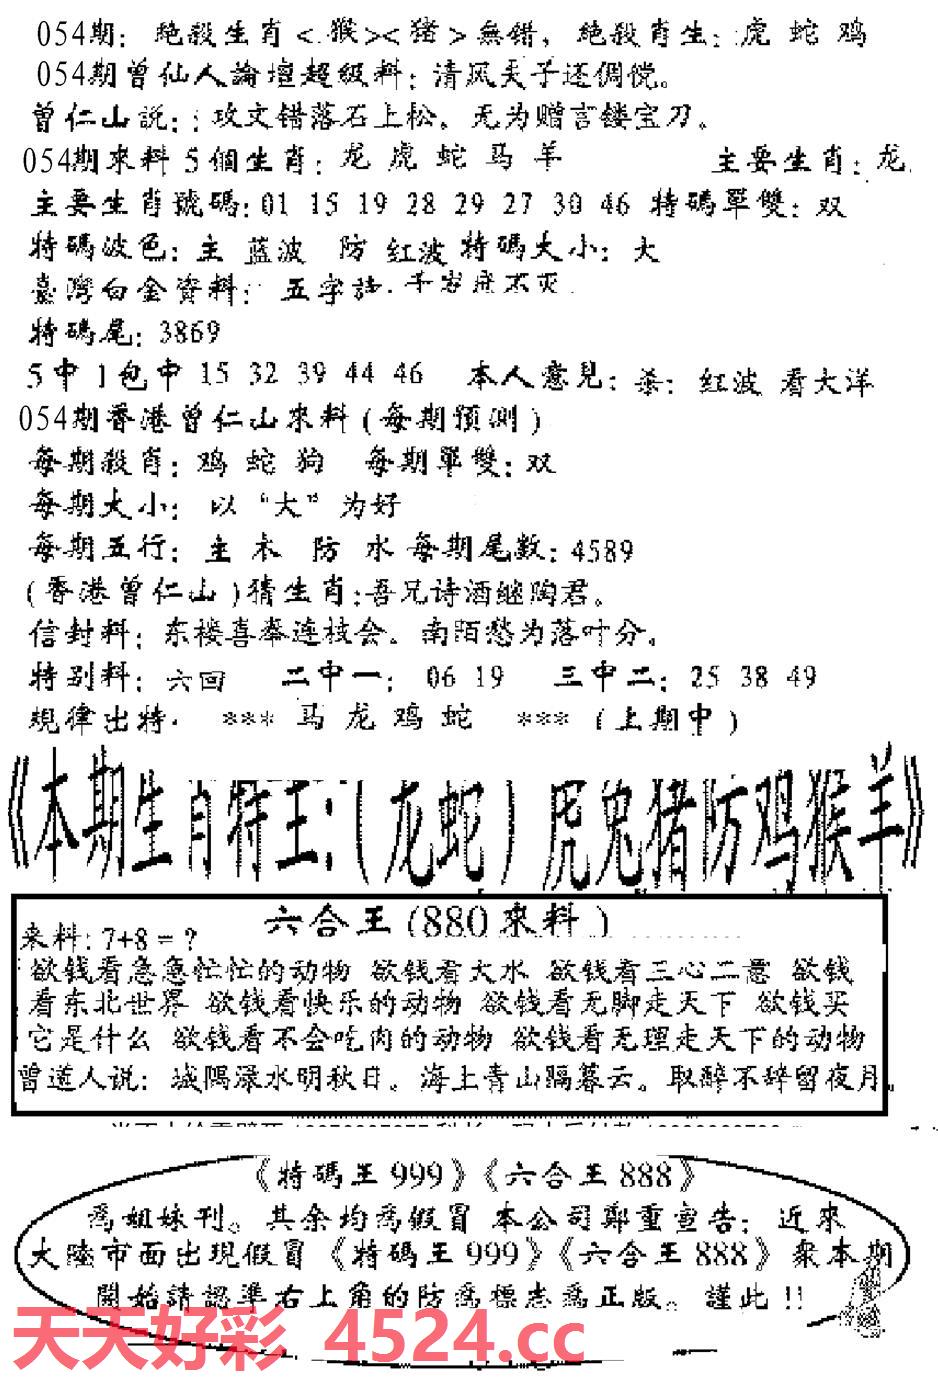 054期：絶殺生肖<猴><猪>無錯，絶殺肖生：虎 蛇 鸡
054期曾仙人論壇超級料：清风天子还倜傥。
曾仁山説：攻文错落石上松。无为赠言镂宝刀。
054期來料 5個生肖：龙 虎 蛇 马 羊 主要生肖：龙
主要生肖號碼：01 15 19 28 29 27 30 46 特碼單雙：双
特碼波色：主 蓝波 防 红波 特碼大小：大
臺灣白金資料： 五字詩.千岁底不灭
特碼尾：3869
5中1包中 15 32 39 44 46 本人意見：杀：红波 看大洋
054期香港曾仁山來料(每期預測)
每期殺肖：鸡 蛇 狗 每期單雙：双
每期大小：以“大”为好
每期五行：主 木 防 水 每期尾数：4589
(香港曾仁山)猜生肖：吾兄诗酒继陶君。
信封料：东楼喜奉连枝会。南陌愁为落叶分。
特别料：六回 二中一：06 19 三中二：25 38 49
規律出特. *** 马 龙 鸡 蛇 *** (上期中)
《本期生肖特王：(龙蛇)虎兔猪防鸡猴羊》
六合王(880來料)
来料：7+8=?
欲钱看急急忙忙的动物 欲钱看大水 欲钱看三心二意 欲钱
看东北世界 欲钱看快乐的动物 欲钱看无脚走天下 欲钱买
它是什么 欲钱看不会吃肉的动物 欲钱看无理走天下的动物
曾道人说：城隅渌水明秋日。海上青山隔暮云。取醉不辞留夜月。
《特碼王999》《六合王888》
爲姐妹刊。其余均爲假冒 本公司鄭重宣告：近來
大陸市面出現假冒《特碼王999》《六合王888》衆本期
開始請認準右上角的防爲標志爲正版。謹此!!
天天好彩 4524.cc